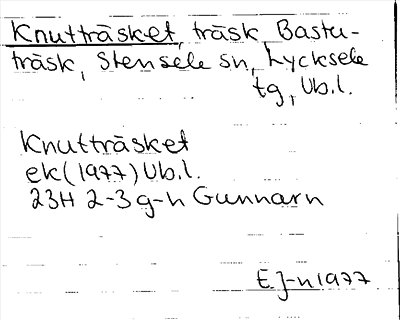 Knutträsket, träsk, Bastu-
träsk, Stensele sn, Lycksele
tg, Vb.l.
Knutträsket
ek (1977) Vb.l.
23H 2-3 g-h Gunnarn
E J-n 1977